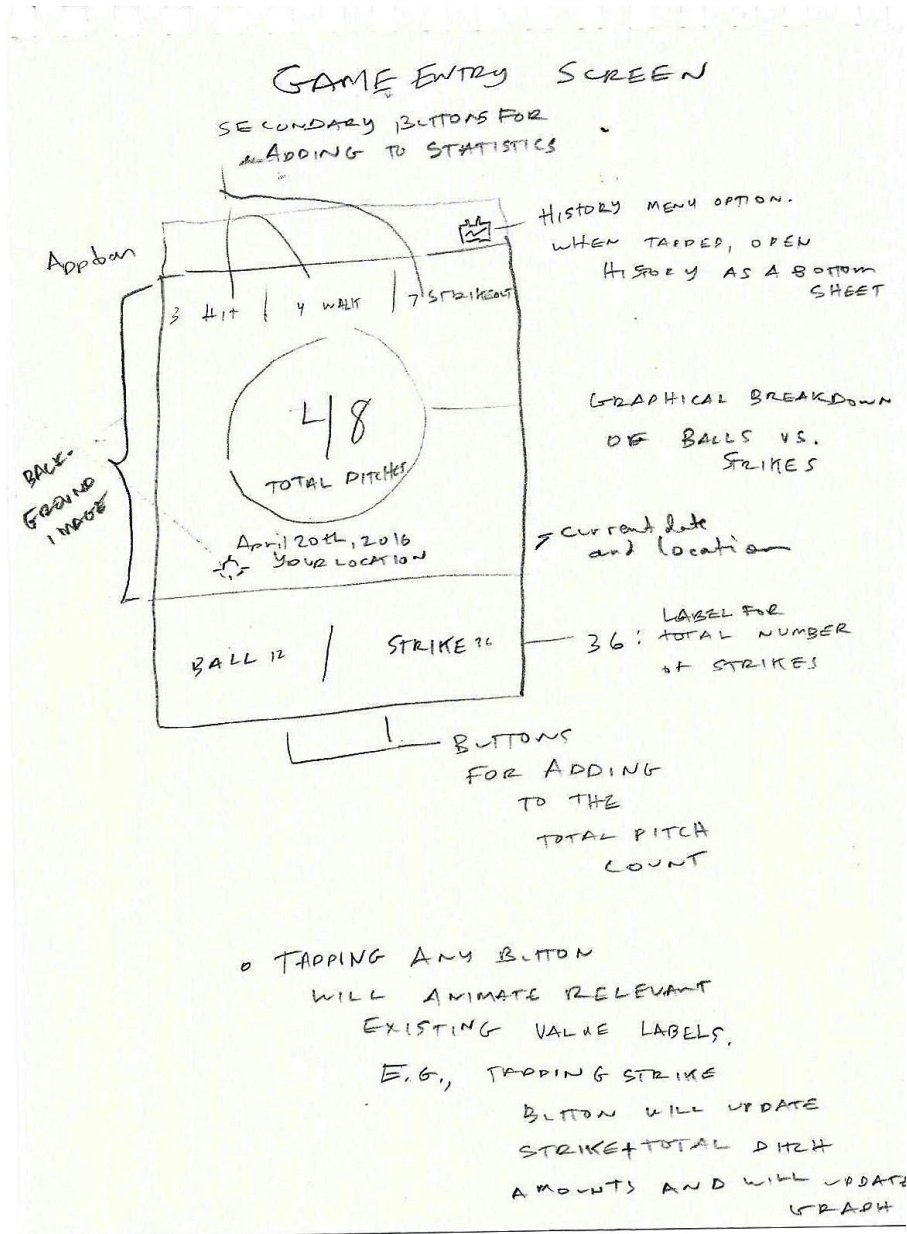 GAME ENTRY SCREEN
SECONDARY BUTTONS FOR
ADDING TO STATISTICS
HISTORY MENU OPTION.
WHEN TAPPED, OPEN
HISTORY AS A BOTTOM
SHEET
Appbar
3 HIT | 4 WALK | 7 STRIKEOUT
48
TOTAL PITCHES
GRAPHICAL BREAKDOWN
OF BALLS VS.
STRIKES
BACK-
GROUND
IMAGE
April 20th, 2016
YOUR LOCATION
current date
and location
BALL 12 / STRIKE 36
36: LABEL FOR
TOTAL NUMBER
of STRIKES
BUTTONS
FOR ADDING
TO THE
TOTAL PITCH
COUNT
o TAPPING ANY BUTTON
WILL ANIMATE RELEVANT
EXISTING VALUE LABELS.
E.G., TAPPING STRIKE
BUTTON WILL UPDATE
STRIKE + TOTAL PITCH
AMOUNTS AND WILL UPDATE
GRAPH